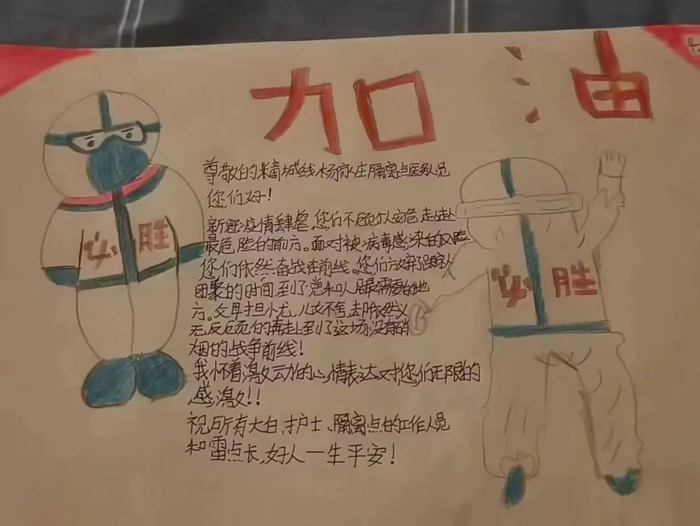 加油
尊敬的城线杨家庄隔离点医务人员
您们好!
新冠疫情肆虐,您们不顾个人安危走上
最危险的前方。面对被病毒感染的风险
您们依然奋战在前线。您们放弃家人
团聚的时间,到了党和人民最需要的地
方。父母担忧,儿女不舍,去毅然义
无反顾的奔赴到了这场没有硝
烟的战争前线!
我怀着激动的心情表达对您们无限的
感激!!
祝所有大白、护士、隔离点的工作人员
和雷点长,好人一生平安!
必胜
必胜